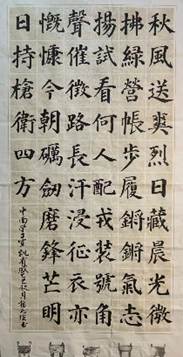 秋風送爽烈日藏晨光微
拂綠營帳步履鏘鏘氣志
揚試看何人配戎裝號角
聲催徵路長汗浸征衣亦
慨慷今朝礪劍磨鋒芒明
日持槍衛四方
中南學子